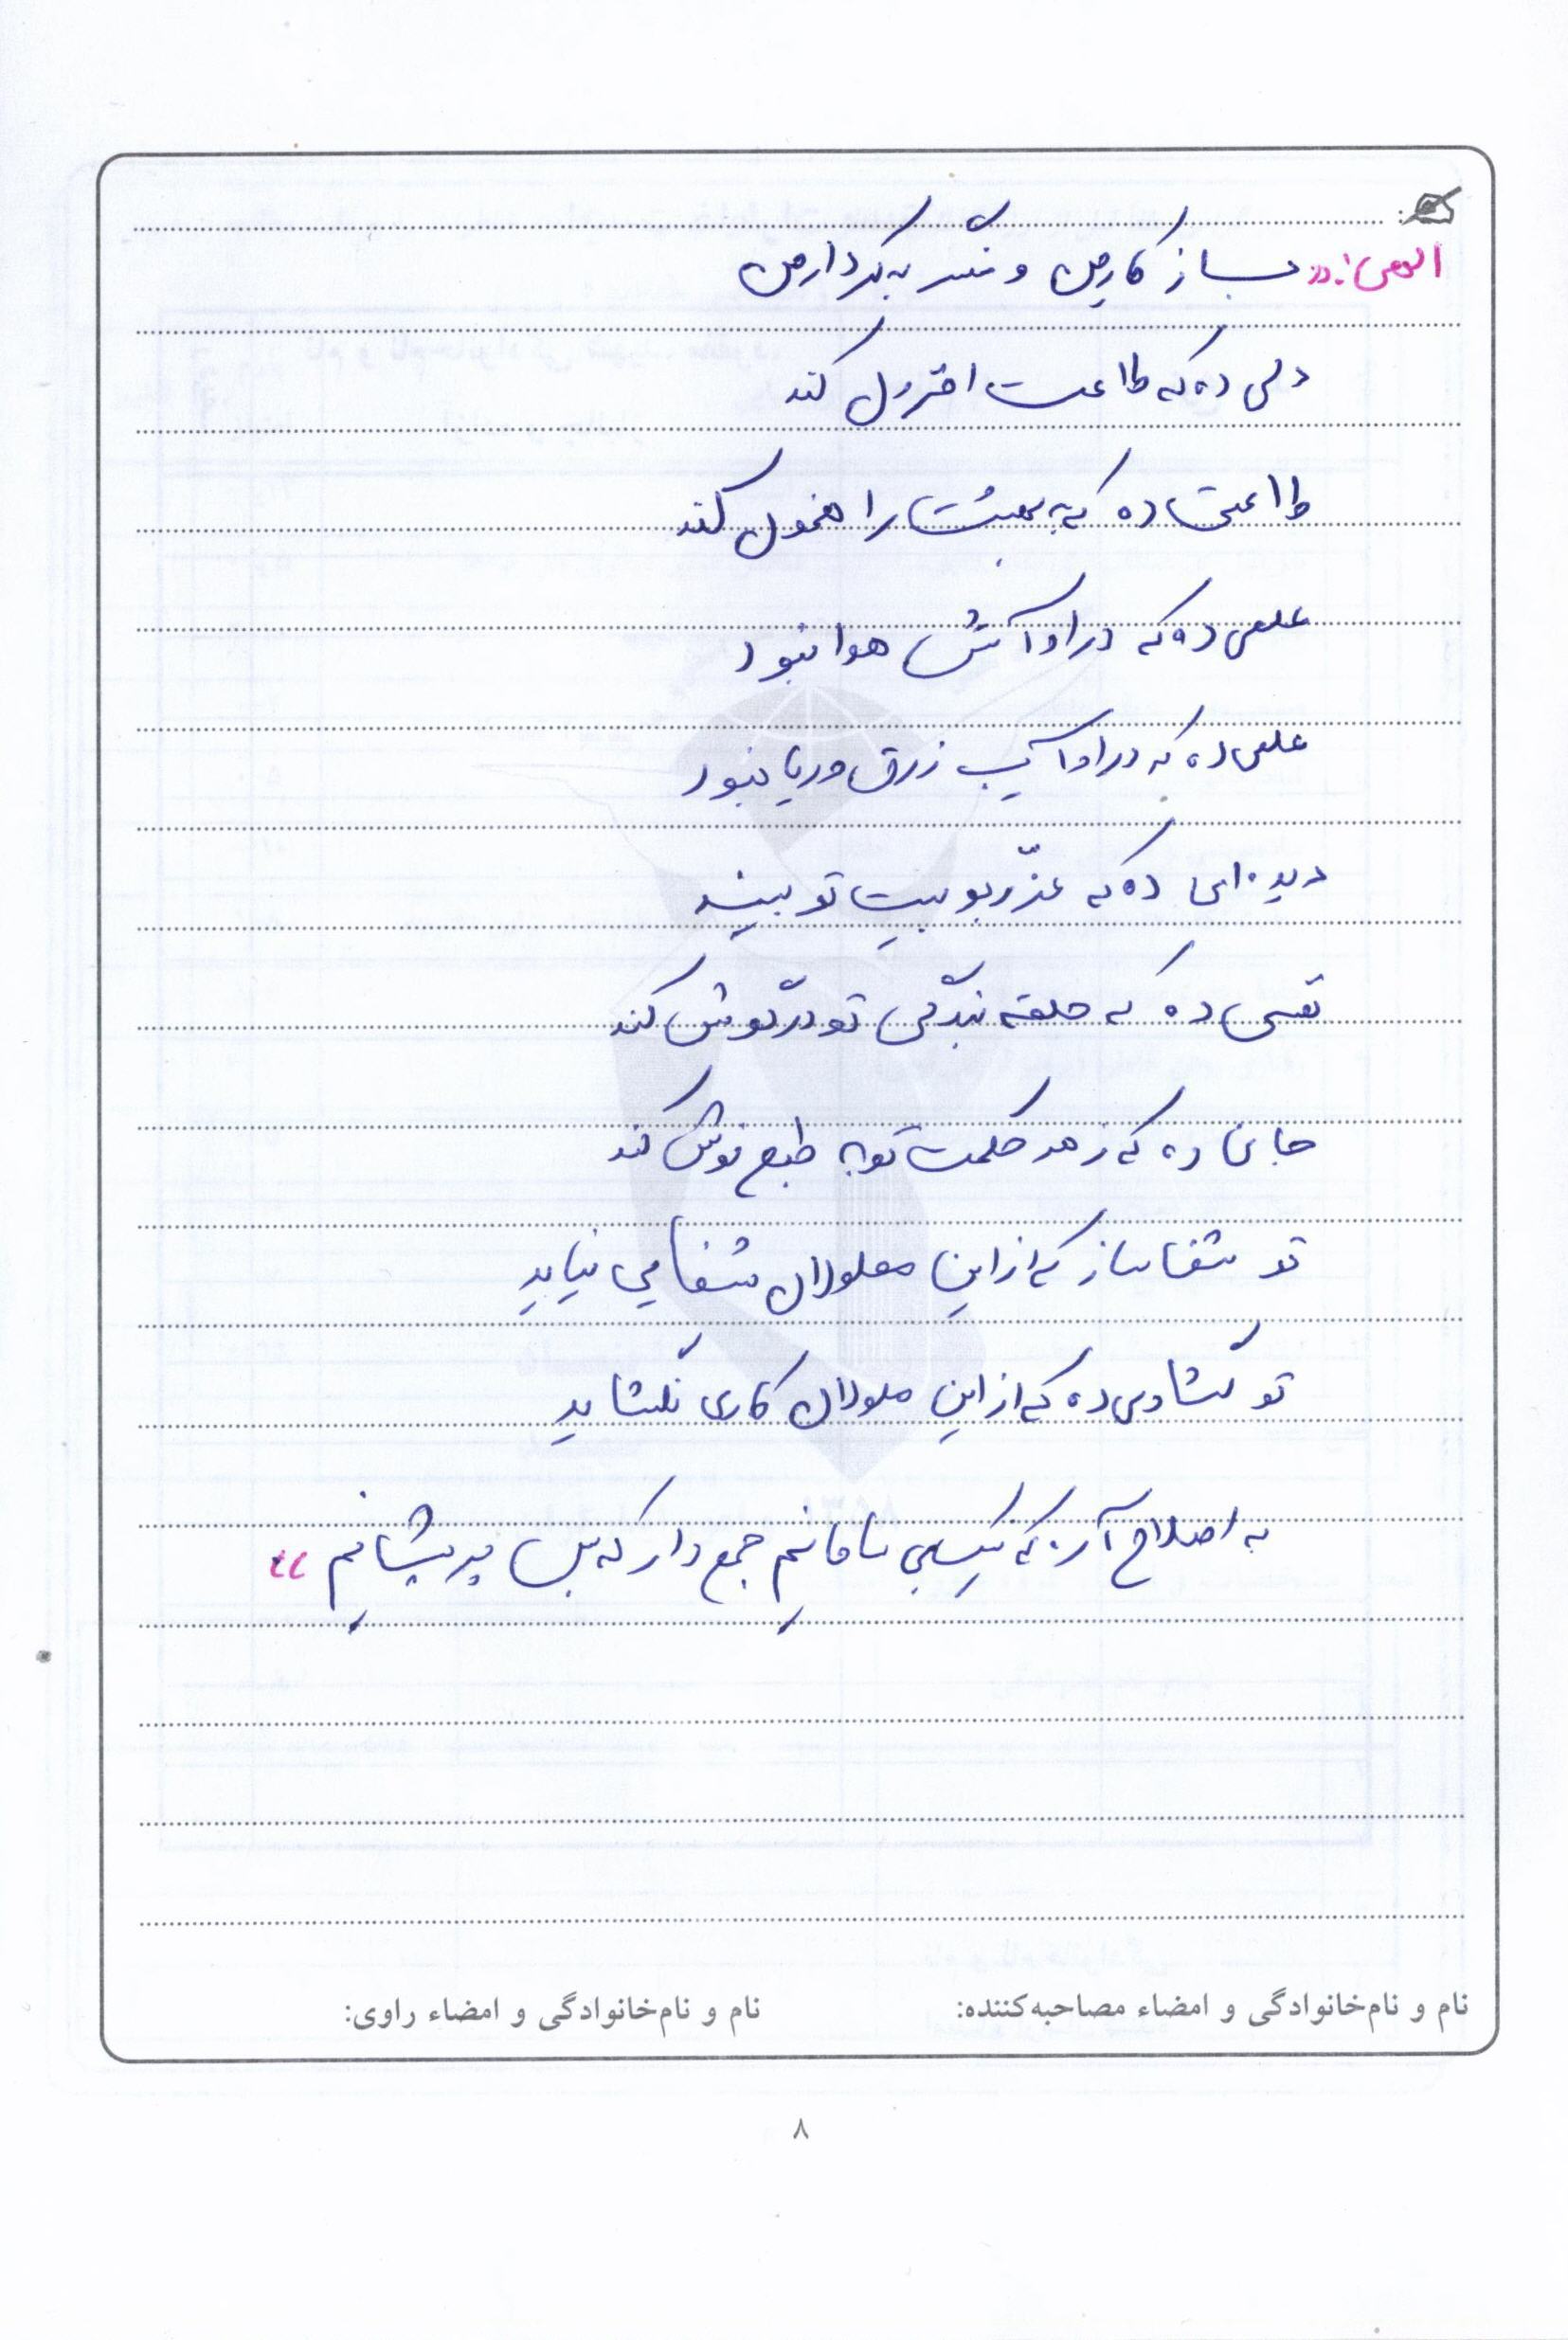 الهی: «بساز کار من و منگر به کردار من
دلی ده که طاعت افزون کند
طاعتی ده که به بهشت راهنمون کند
علمی ده که در او آتش هوا نبود
علمی ده که در او آب زرق و ریا نبود
دیده ای ده که عزّ ربوبیت تو بیند
نفسی ده که حلقه بندگی تو در گوش کند
جانی ده که زهر حکمت تو به طبع نوش کند
تو شفا ساز که از این معلولان شفایی نیاید
تو گشادی ده که از این ملولان کاری نگشاید
به اصلاح آر که بی سامانیم جمع دار که بس پریشانیم»
نام و نام‌خانوادگی و امضاء مصاحبه‌کننده: نام و نام‌خانوادگی و امضاء راوی:
۸